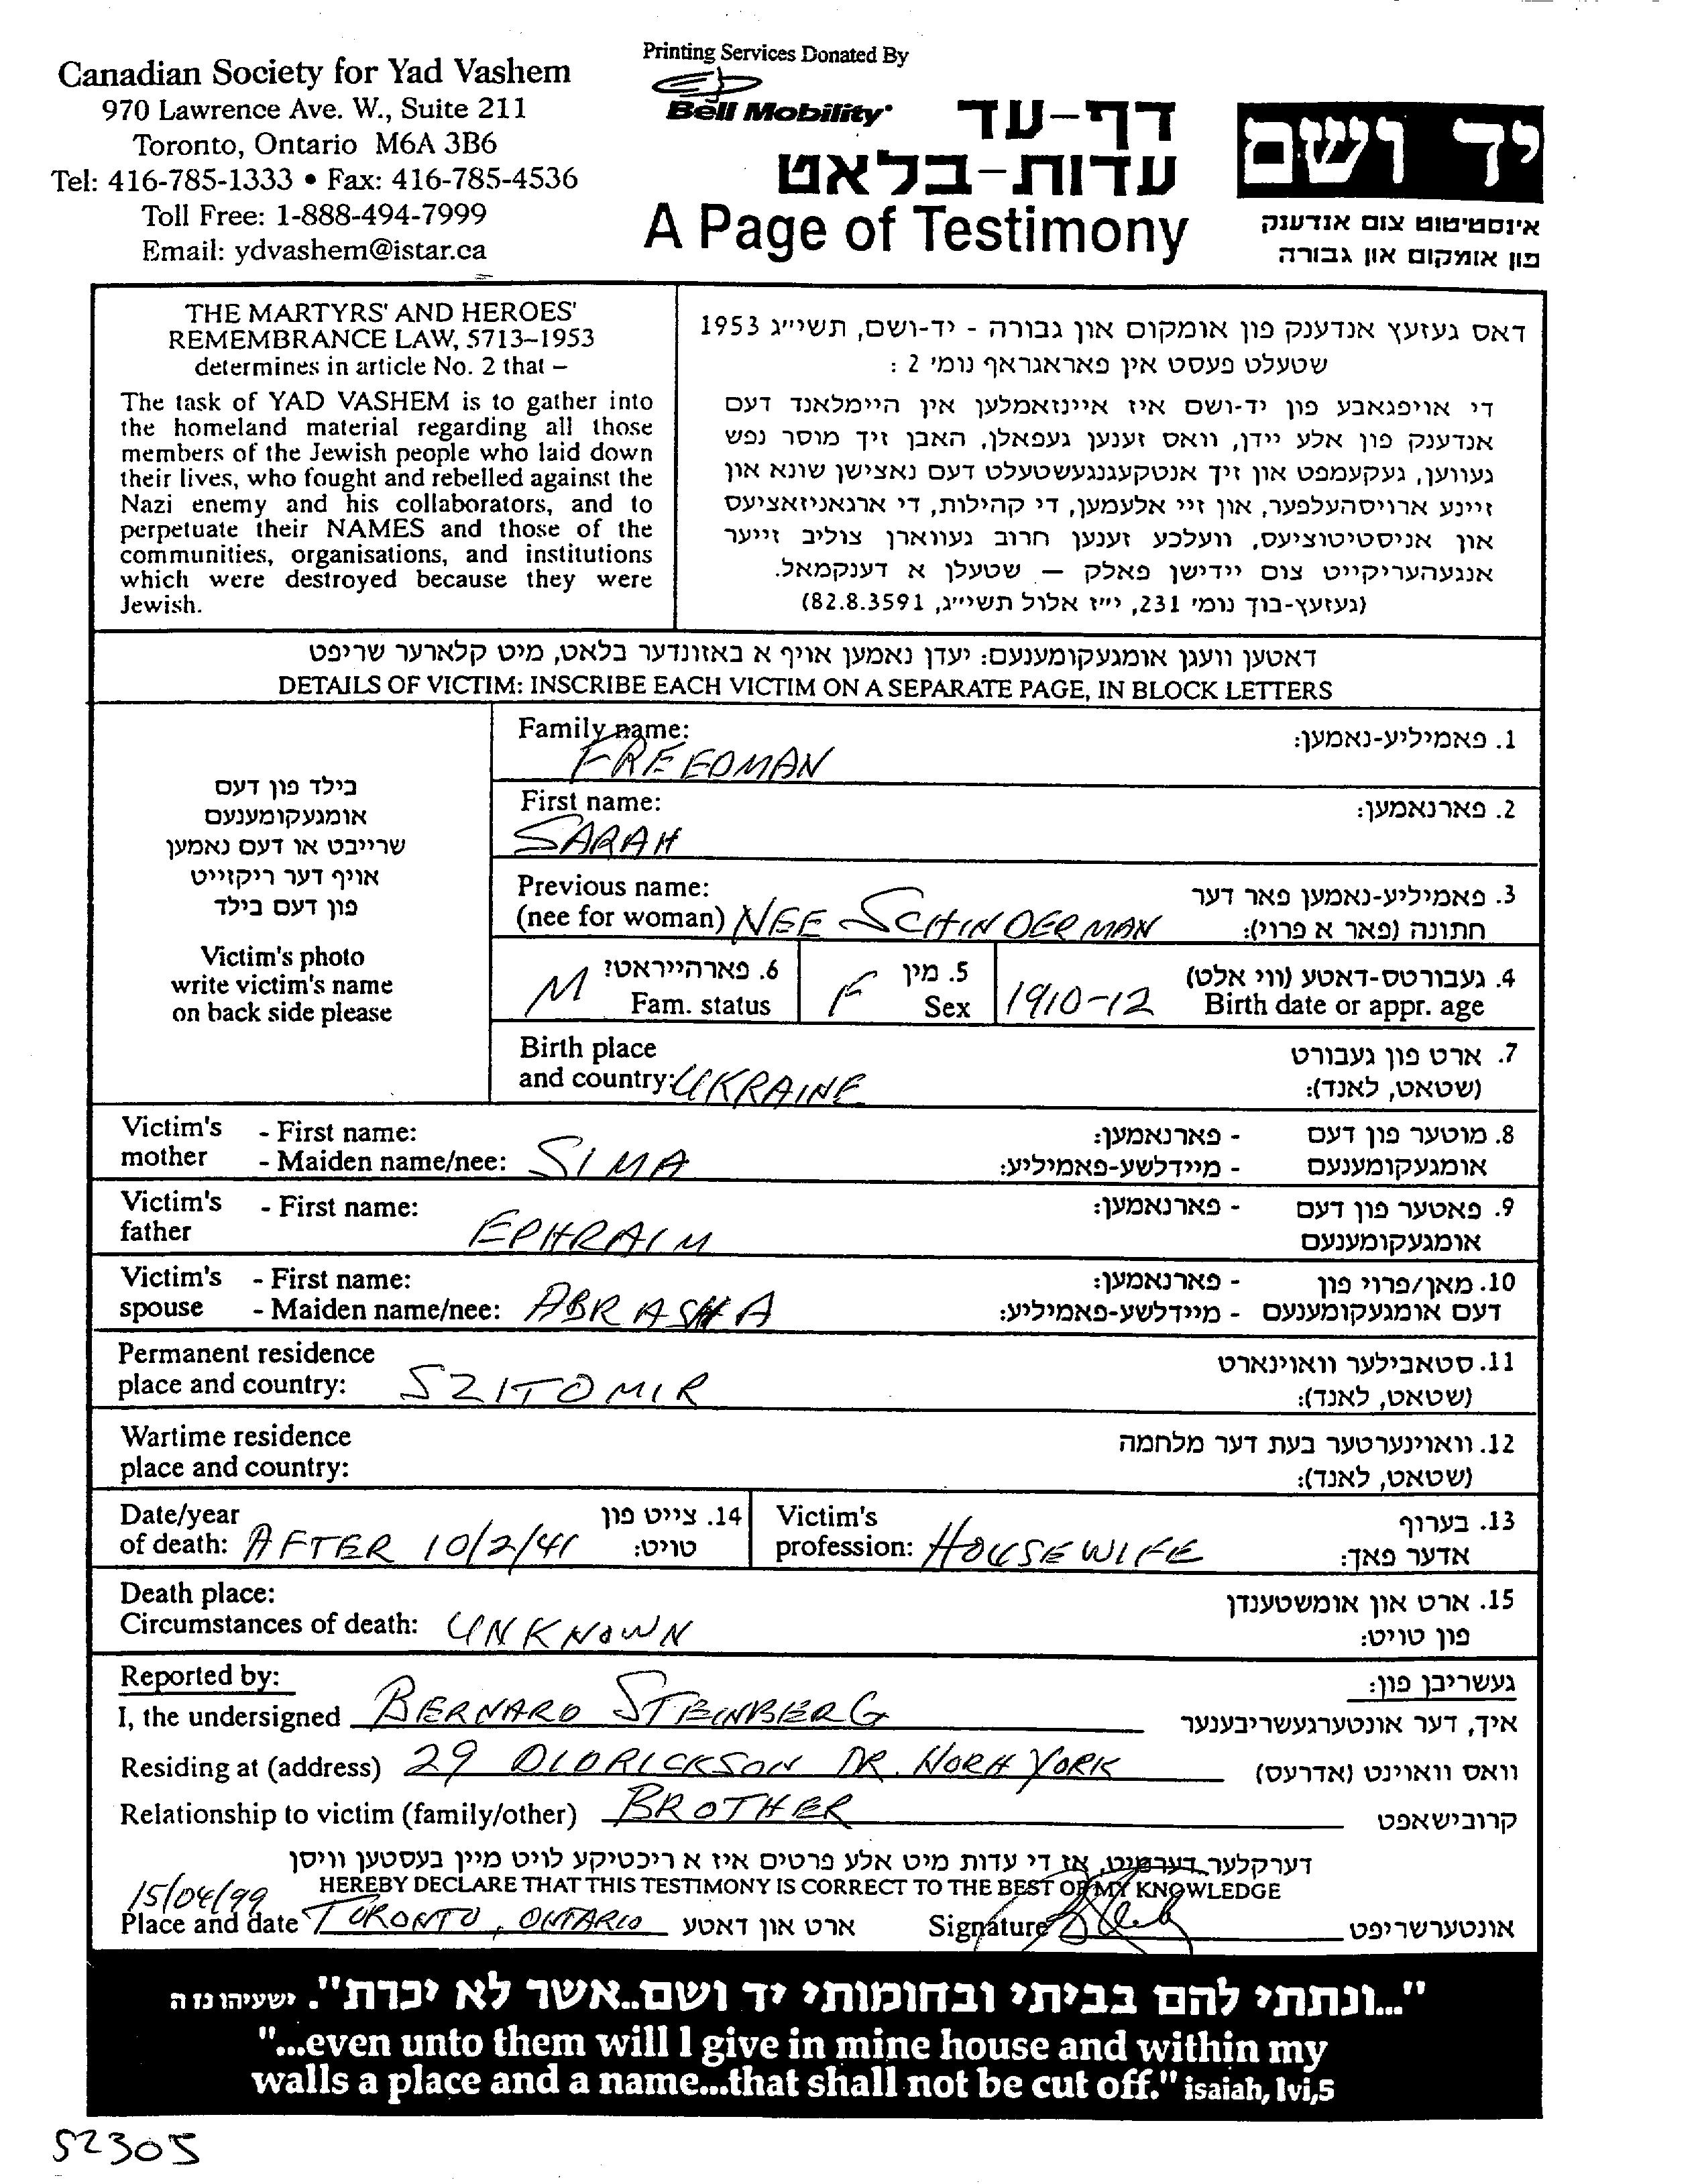 Canadian Society for Yad Vashem
970 Lawrence Ave. W., Suite 211
Toronto, Ontario M6A 3B6
Tel: 416-785-1333 • Fax: 416-785-4536
Toll Free: 1-888-494-7999
Email: ydvashem@istar.ca
Printing Services Donated By
Bell Mobility
דף-עד
עדות-בלאט
A Page of Testimony
יד ושם
אינסטיטוט צום אנדענק
פון אומקום און גבורה
THE MARTYRS' AND HEROES'
REMEMBRANCE LAW, 5713–1953
determines in article No. 2 that –
The task of YAD VASHEM is to gather into
the homeland material regarding all those
members of the Jewish people who laid down
their lives, who fought and rebelled against the
Nazi enemy and his collaborators, and to
perpetuate their NAMES and those of the
communities, organisations, and institutions
which were destroyed because they were
Jewish.
דאס געזעץ אנדענק פון אומקום און גבורה - יד-ושם, תשי״ג 1953
שטעלט פעסט אין פאראגראף נומ׳ 2 :
די אויפגאבע פון יד-ושם איז איינזאמלען אין היימלאנד דעם
אנדענק פון אלע יידן, וואס זענען געפאלן, האבן זיך מוסר נפש
געווען, געקעמפט און זיך אנטקעגנגעשטעלט דעם נאצישן שונא און
זיינע ארויסהעלפער, און זיי אלעמען, די קהילות, די ארגאניזאציעס
און אניסטיטוציעס, וועלכע זענען חרוב געווארן צוליב זייער
אנגעהעריקייט צום יידישן פאלק — שטעלן א דענקמאל.
(געזעץ-בוך נומ׳ 231, י״ז אלול תשי״ג, 82.8.3591)
דאטען וועגן אומגעקומענעם: יעדן נאמען אויף א באזונדער בלאט, מיט קלארער שריפט
DETAILS OF VICTIM: INSCRIBE EACH VICTIM ON A SEPARATE PAGE, IN BLOCK LETTERS
בילד פון דעם
אומגעקומענעם
שרייבט או דעם נאמען
אויף דער ריקזייט
פון דעם בילד
Victim's photo
write victim's name
on back side please
Family name: 1. פאמיליע-נאמען:
FREEDMAN
First name: 2. פארנאמען:
SARAH
Previous name: 3. פאמיליע-נאמען פאר דער
(nee for woman) NEE SCHINDERMAN חתונה (פאר א פרוי):
M 6. פארהייראטט?
Fam. status
F 5. מין
Sex
1910-12 4. געבורטס-דאטע (ווי אלט)
Birth date or appr. age
Birth place 7. ארט פון געבורט
and country: UKRAINE (שטאט, לאנד):
Victim's - First name: פארנאמען: - 8. מוטער פון דעם
mother - Maiden name/nee: SIMA מיידלשע-פאמיליע: - אומגעקומענעם
Victim's - First name: פארנאמען: - 9. פאטער פון דעם
father EPHRAIM אומגעקומענעם
Victim's - First name: פארנאמען: - 10. מאן/פרוי פון
spouse - Maiden name/nee: ABRASHA מיידלשע-פאמיליע: - דעם אומגעקומענעם
Permanent residence 11. סטאבילער וואוינארט
place and country: SZITOMIR (שטאט, לאנד):
Wartime residence 12. וואוינערטער בעת דער מלחמה
place and country: (שטאט, לאנד):
Date/year 14. צייט פון
of death: AFTER 10/2/41 טויט:
Victim's 13. בערוף
profession: HOUSEWIFE אדער פאך:
Death place: 15. ארט און אומשטענדן
Circumstances of death: UNKNOWN פון טויט:
Reported by: געשריבן פון:
I, the undersigned BERNARD STEINBERG איך, דער אונטערגעשריבענער
Residing at (address) 29 OLDRICKSON DR. NORH YORK וואס וואוינט (אדרעס)
Relationship to victim (family/other) BROTHER קרובישאפט
דערקלער דערמיט, אז די עדות מיט אלע פרטים איז א ריכטיקע לויט מיין בעסטען וויסן
HEREBY DECLARE THAT THIS TESTIMONY IS CORRECT TO THE BEST OF MY KNOWLEDGE
15/04/99
Place and date TORONTO, ONTARIO ארט און דאטע Signature אונטערשריפט
"...ונתתי להם בביתי ובחומותי יד ושם..אשר לא יכרת". ישעיהו נז ה
"...even unto them will I give in mine house and within my
walls a place and a name...that shall not be cut off." isaiah, lvi,5
52305